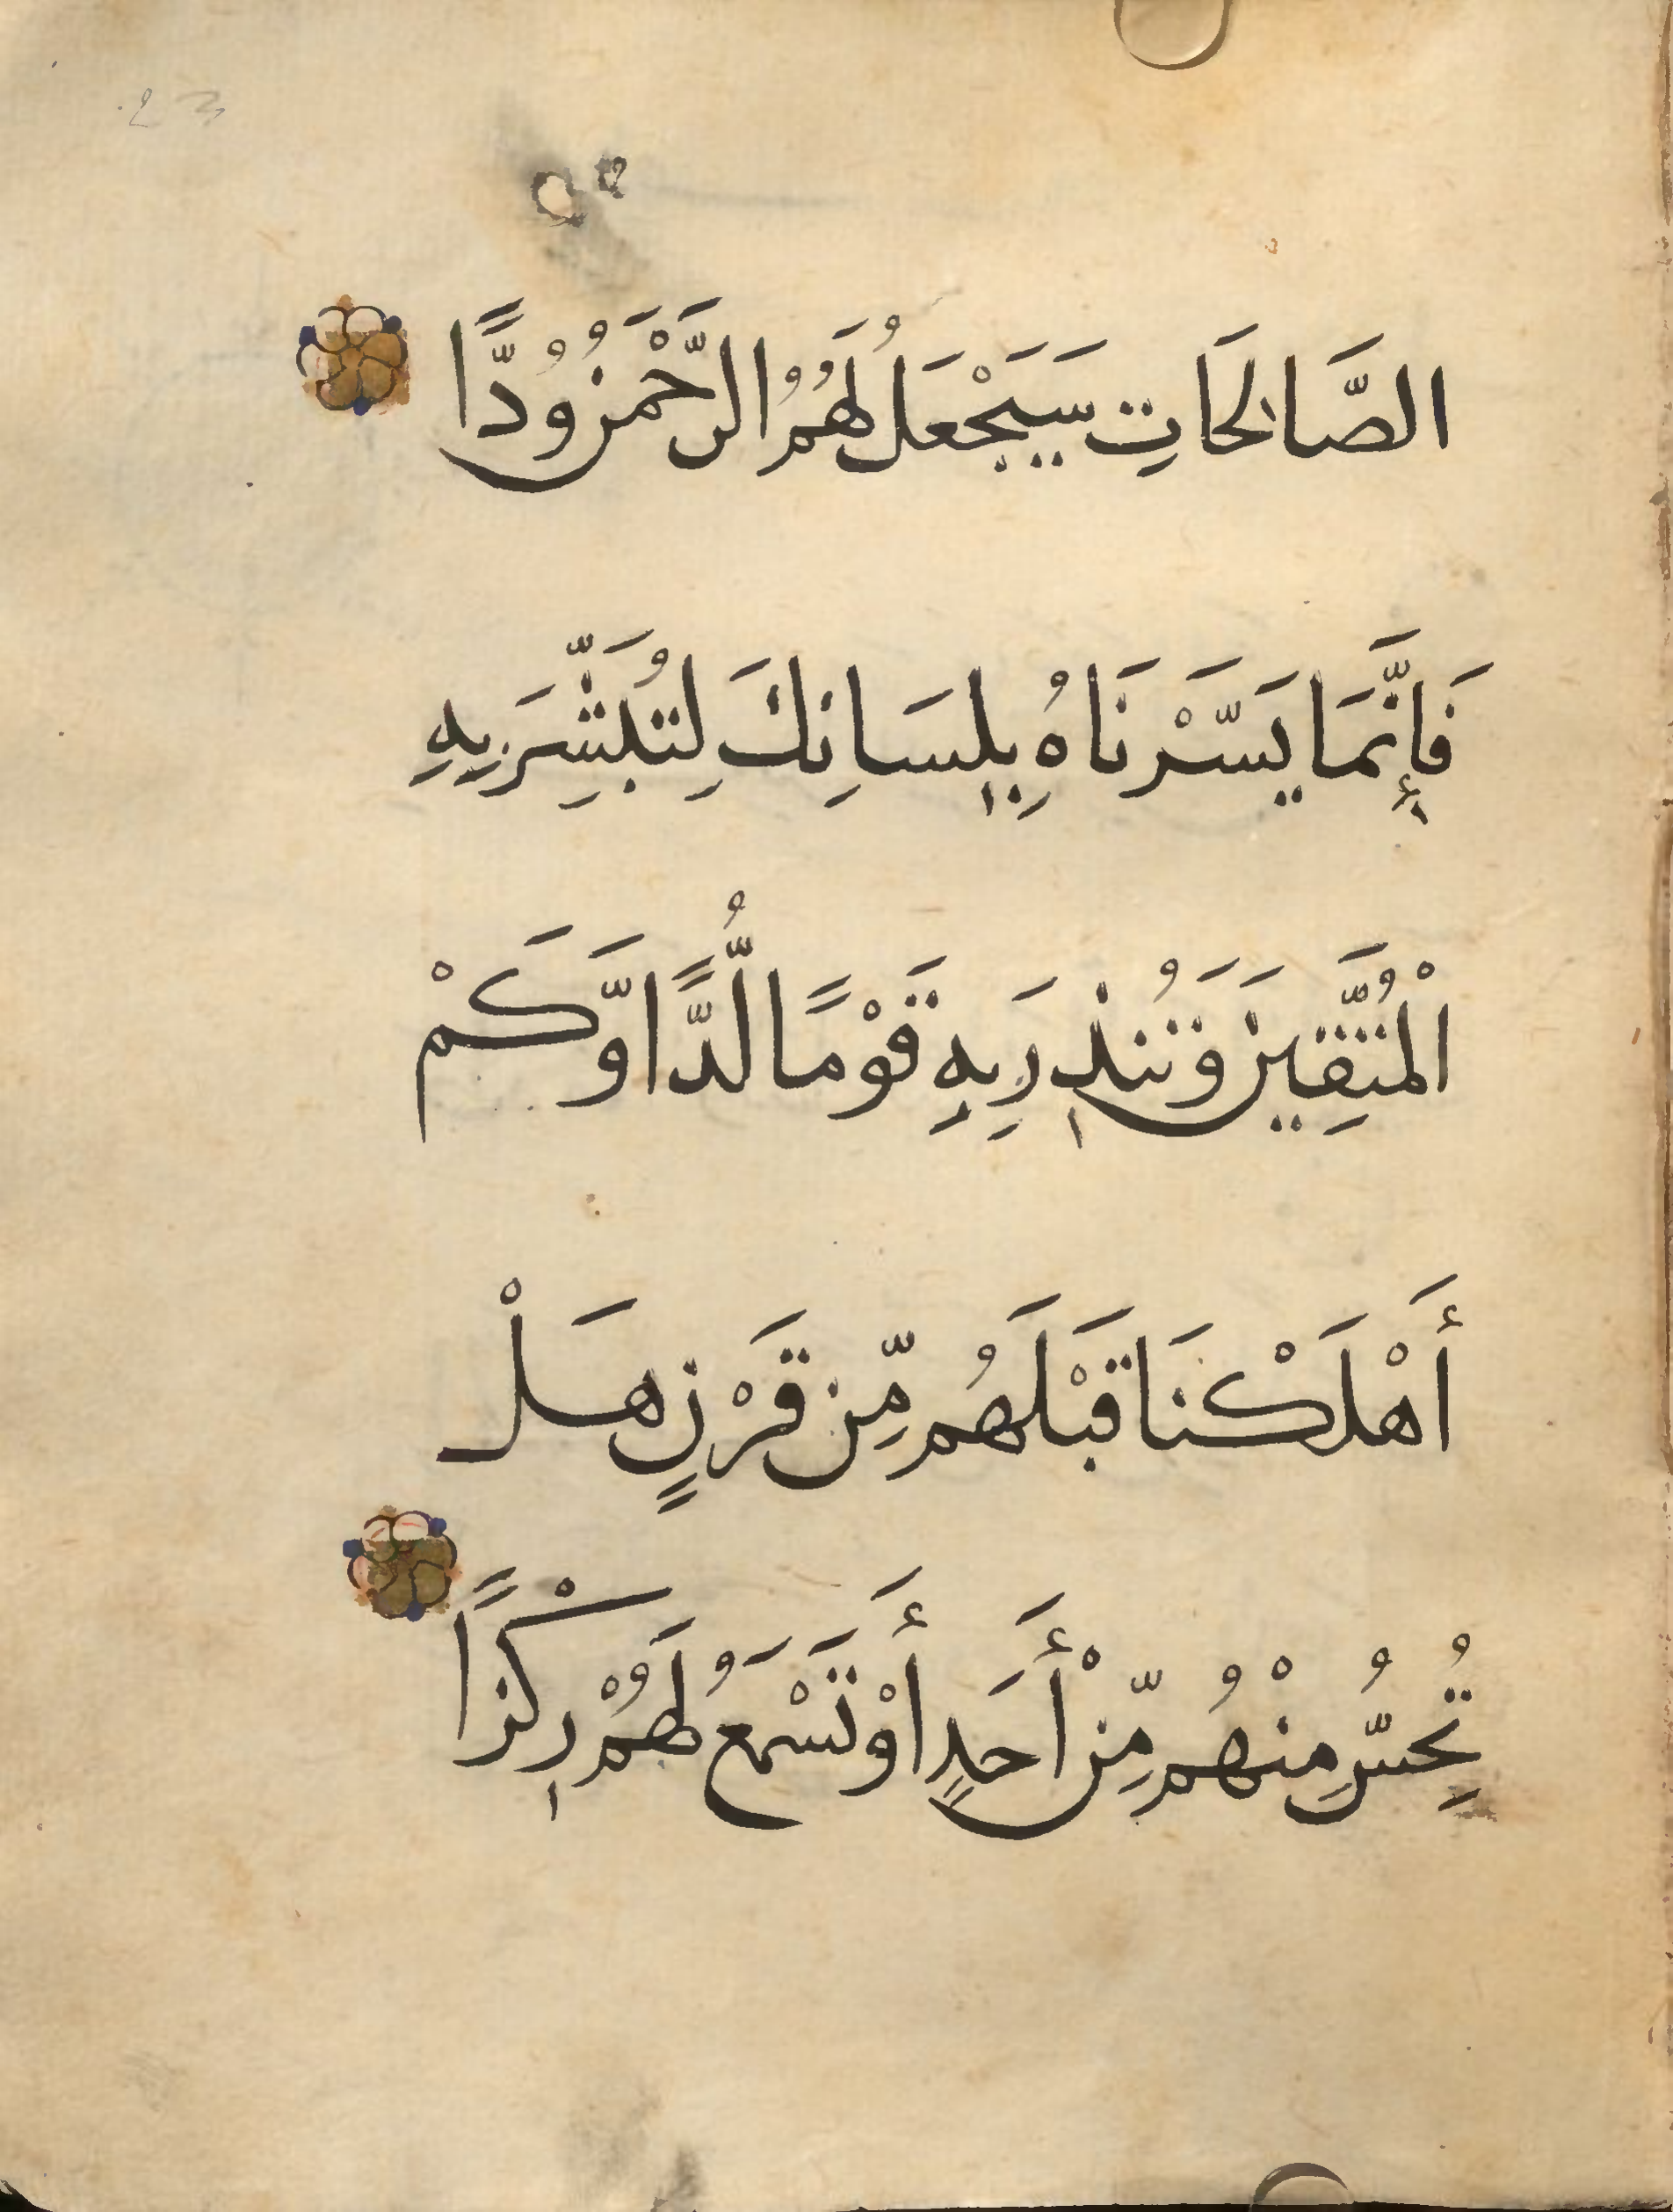 23
الصَّالِحَاتِ سَيَجْعَلُ لَهُمُ الرَّحْمَنُ وُدًّا
فَإِنَّمَا يَسَّرْنَاهُ بِلِسَانِكَ لِتُبَشِّرَ بِهِ
الْمُتَّقِينَ وَتُنذِرَ بِهِ قَوْمًا لُّدًّا وَّكَمْ
أَهْلَكْنَا قَبْلَهُم مِّن قَرْنٍ هَلْ
تُحِسُّ مِنْهُم مِّنْ أَحَدٍ أَوْ تَسْمَعُ لَهُمْ رِكْزًا